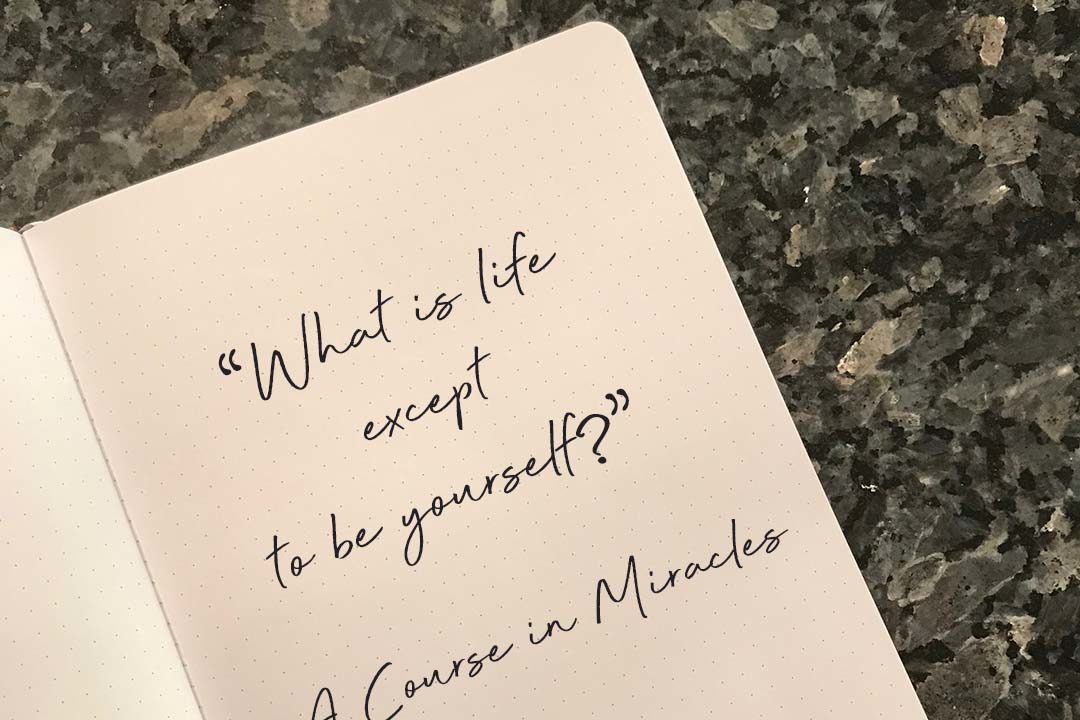 “What is life
except
to be yourself?”
A Course in Miracles